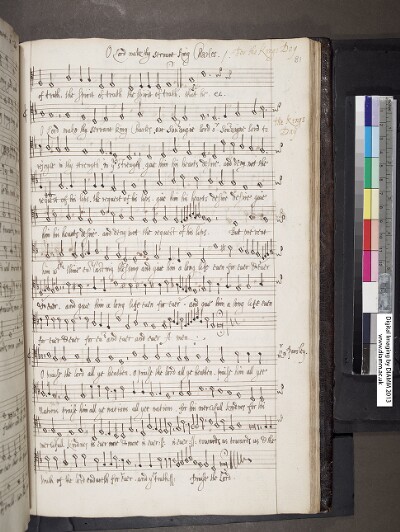 O Lord make thy servant King Charles. / For the Kings Day
81
of truth. the spirit of truth the spirit of truth, that he &c.
the Kings Day
O Lord make thy servant King Charles, our Soveraigne lord our Soveraigne Lord to
rejoyce in thy strength, in thy strength, gave him his hearts desire. and deny not the
request of his lips. the request of his lips. gave him his hearts desire desire gave
him his hearts desire and deny not the request of his lips. But
him with blessing and gave him a long life even for ever & ever
& ever. and gave him a long life even for ever and gave him a long life even
for ever & ever for ever and ever and ever A men.
O praise the lord all ye heathen. O praise the lord all ye heathen. praise him all yee
nations praise him all ye nations all yee nations for his mercifull kindnes for his
mercifull kindnes is ever more towards us
truth of the lord endureth for ever. and ye truth praise the Lord
Digital Imaging by DIAMM 2013
www.diamm.ac.uk